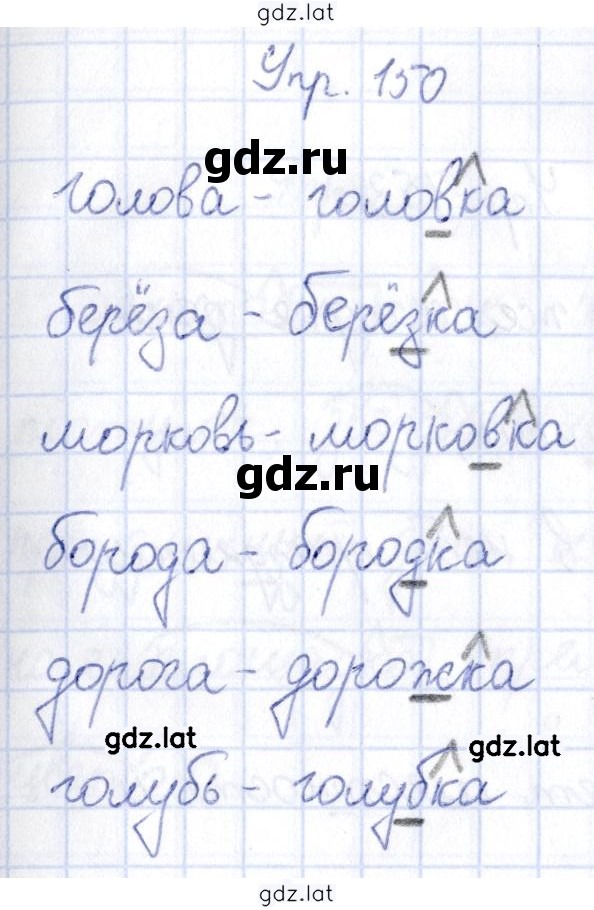 gdz.lat
Упр. 150
gdz.ru
голова - головка
берёза - берёзка
морковь - морковка
gdz.ru
борода - бородка
дорога - дорожка
gdz.lat
gdz.lat
голубь - голубка
gdz.lat